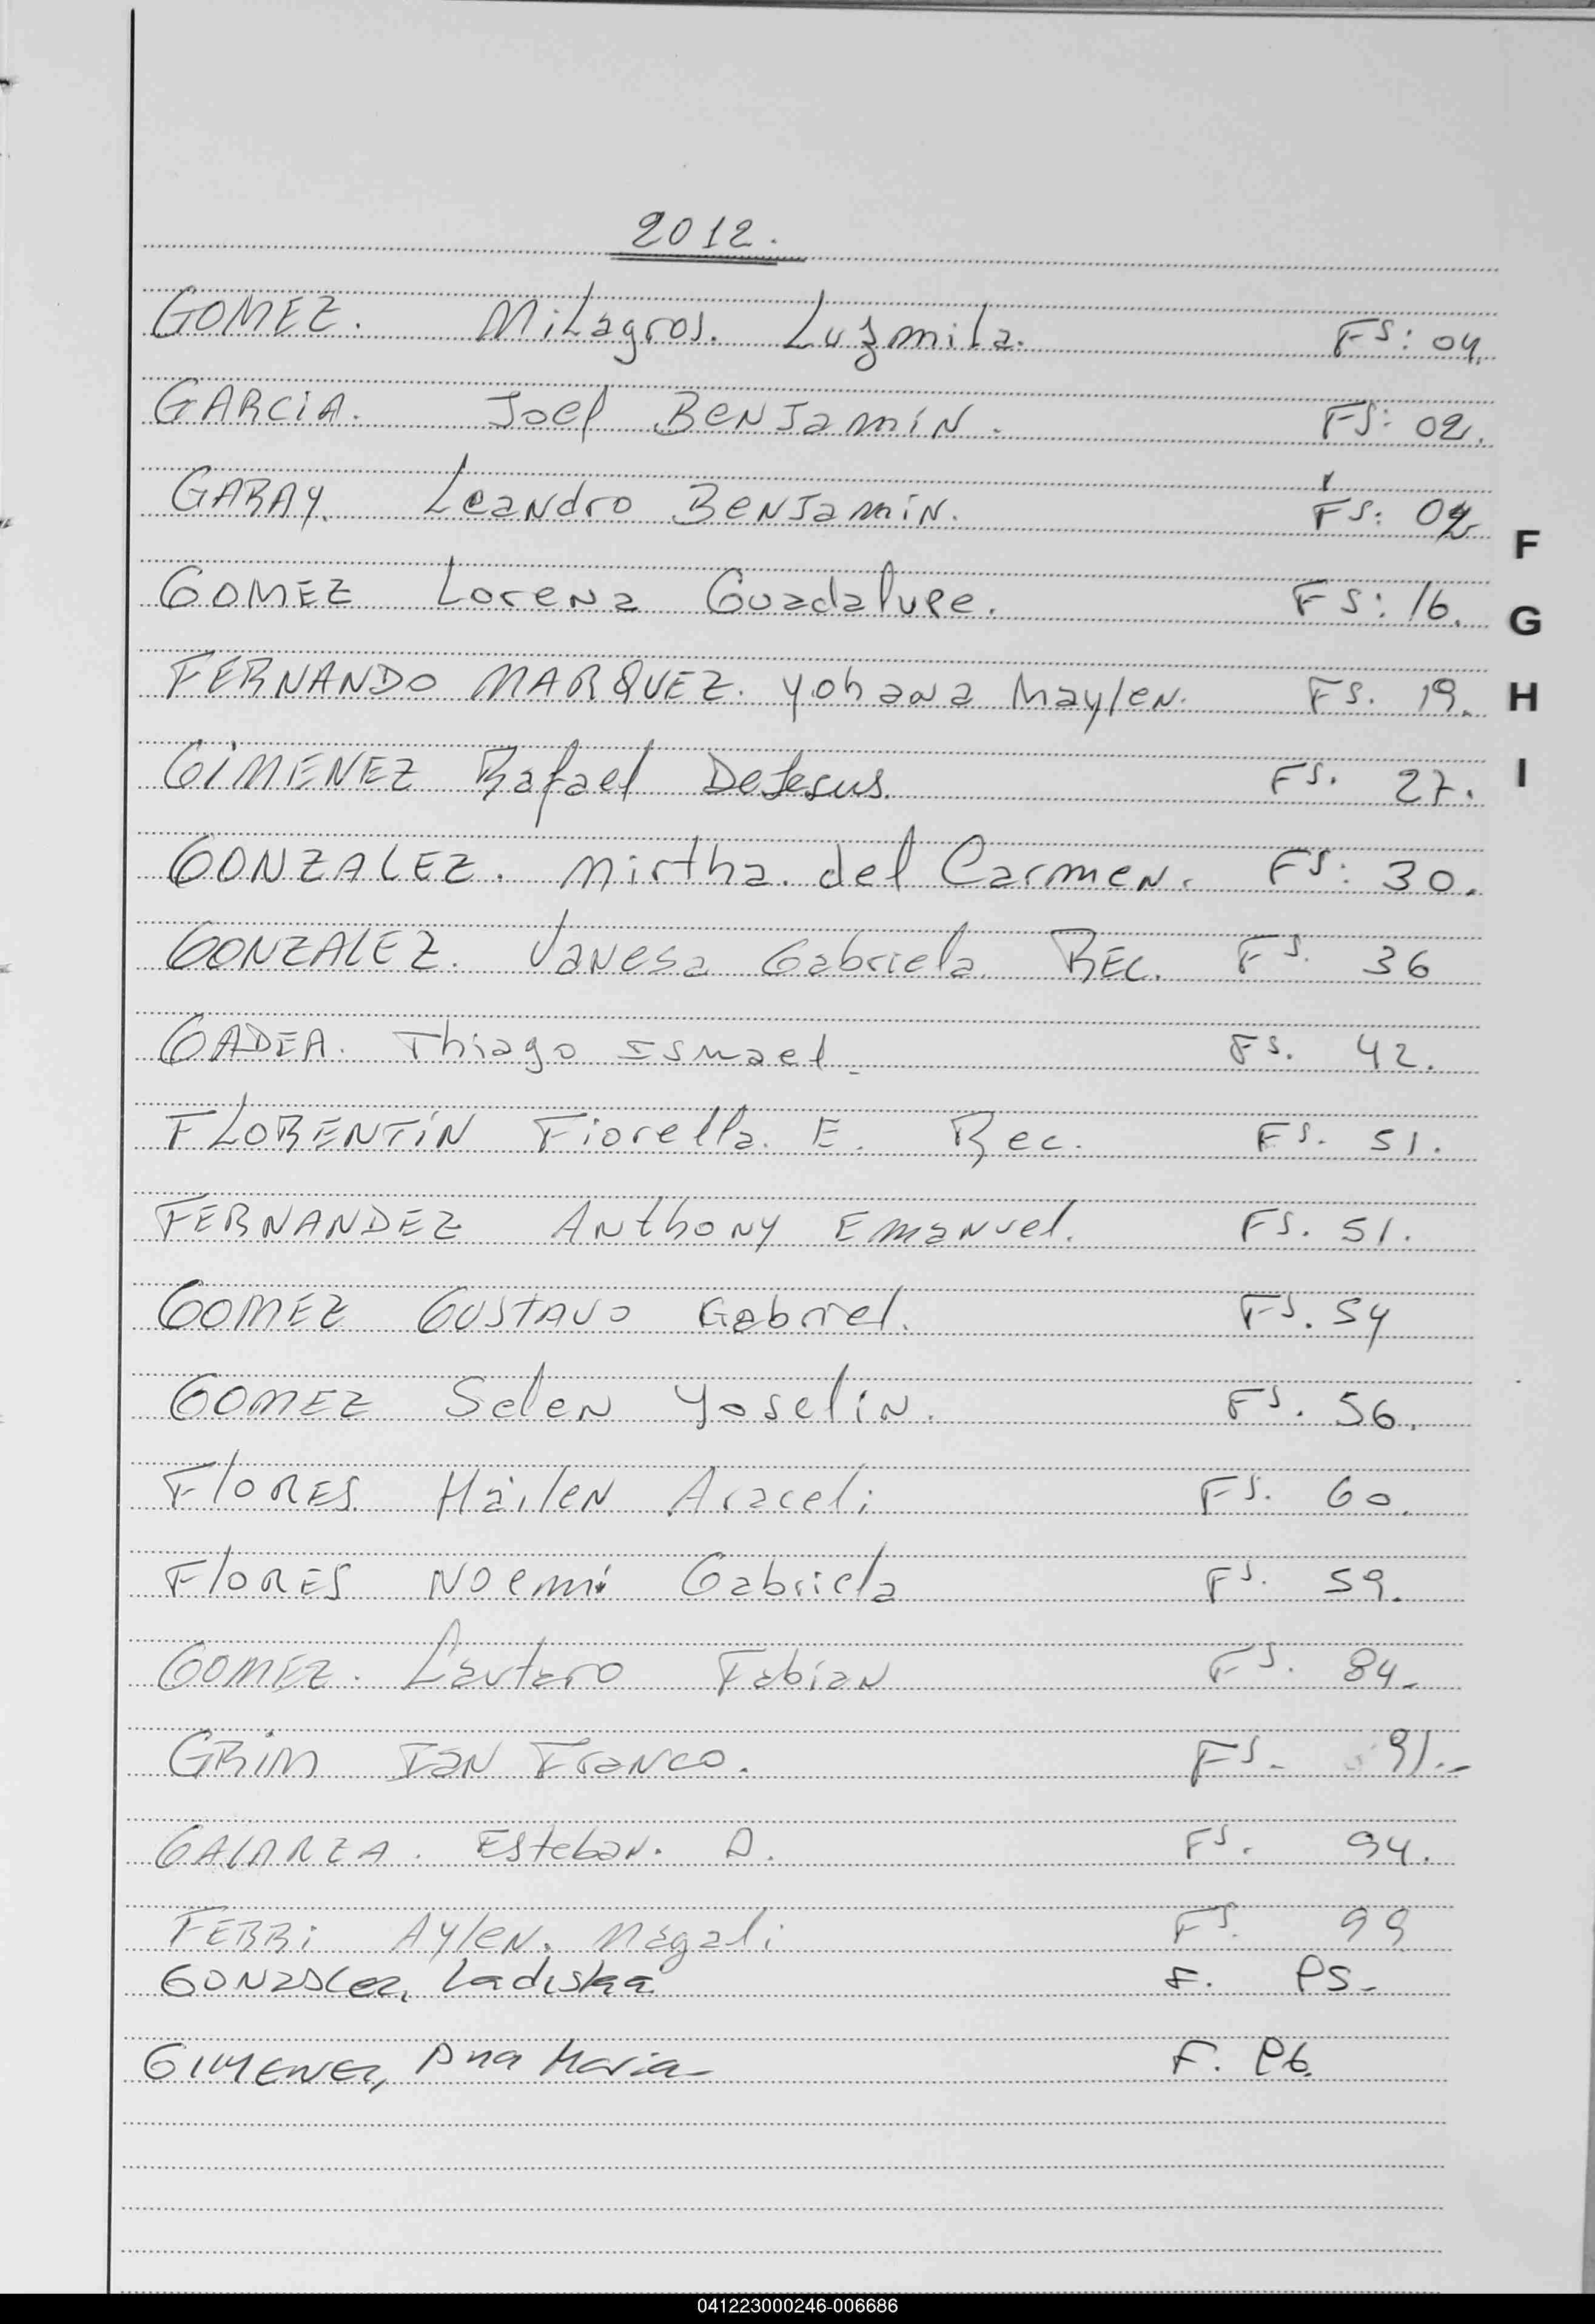 2012.
GOMEZ. Milagros. Luzmila. FS: 04.
GARCIA. Joel Benjamin. FS: 02.
GARAY. Leandro Benjamin. FS:
F
GOMEZ Lorena Guadalupe. FS: 16.
G
FERNANDO MARQUEZ. Yohana Maylen. FS. 19.
H
GIMENEZ Rafael DeJesus. FS. 27.
I
GONZALEZ. Mirtha. del Carmen. FS: 30.
GONZALEZ. Vanesa Gabriela. REC. FS. 36
GADEA. Thiago Ismael. FS. 42.
FLORENTIN Fiorella. E. Rec. FS. 51.
FERNANDEZ Anthony Emanuel. FS. 51.
GOMEZ GUSTAVO Gabriel. FS. 54
GOMEZ Selen Yoselin. FS. 56.
FLORES Hailen Araceli FS. 60.
FLORES Noemi Gabriela FS. 59.
GOMEZ. Lautaro Fabian FS. 84.
GRIM Ian Franco. FS. 91.-
GALARZA. Esteban. A. FS. 94.
FERRI Aylen. Magali FS. 99
GONZALEZ, Ladiska F. 95-
GIMENEZ, Ana Maria- F. 96.
041223000246-006686